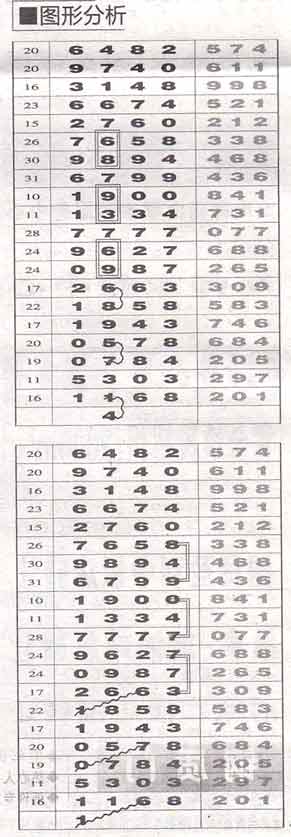 ■图形分析
20 6 4 8 2 5 7 4
20 9 7 4 0 6 1 1
16 3 1 4 8 9 9 8
23 6 6 7 4 5 2 1
15 2 7 6 0 2 1 2
26 7 6 5 8 3 3 8
30 9 8 9 4 4 6 8
31 6 7 9 9 4 3 6
10 1 9 0 0 8 4 1
11 1 3 3 4 7 3 1
28 7 7 7 7 0 7 7
24 9 6 2 7 6 8 8
24 0 9 8 7 2 6 5
17 2 6 6 3 3 0 9
22 1 8 5 8 5 8 3
17 1 9 4 3 7 4 6
20 0 5 7 8 6 8 4
19 0 7 8 4 2 0 5
11 5 3 0 3 2 9 7
16 1 1 6 8 2 0 1
4
20 6 4 8 2 5 7 4
20 9 7 4 0 6 1 1
16 3 1 4 8 9 9 8
23 6 6 7 4 5 2 1
15 2 7 6 0 2 1 2
26 7 6 5 8 3 3 8
30 9 8 9 4 4 6 8
31 6 7 9 9 4 3 6
10 1 9 0 0 8 4 1
11 1 3 3 4 7 3 1
28 7 7 7 7 0 7 7
24 9 6 2 7 6 8 8
24 0 9 8 7 2 6 5
17 2 6 6 3 3 0 9
22 1 8 5 8 5 8 3
17 1 9 4 3 7 4 6
20 0 5 7 8 6 8 4
19 0 7 8 4 2 0 5
11 5 3 0 3 2 9 7
16 1 1 6 8 2 0 1
1